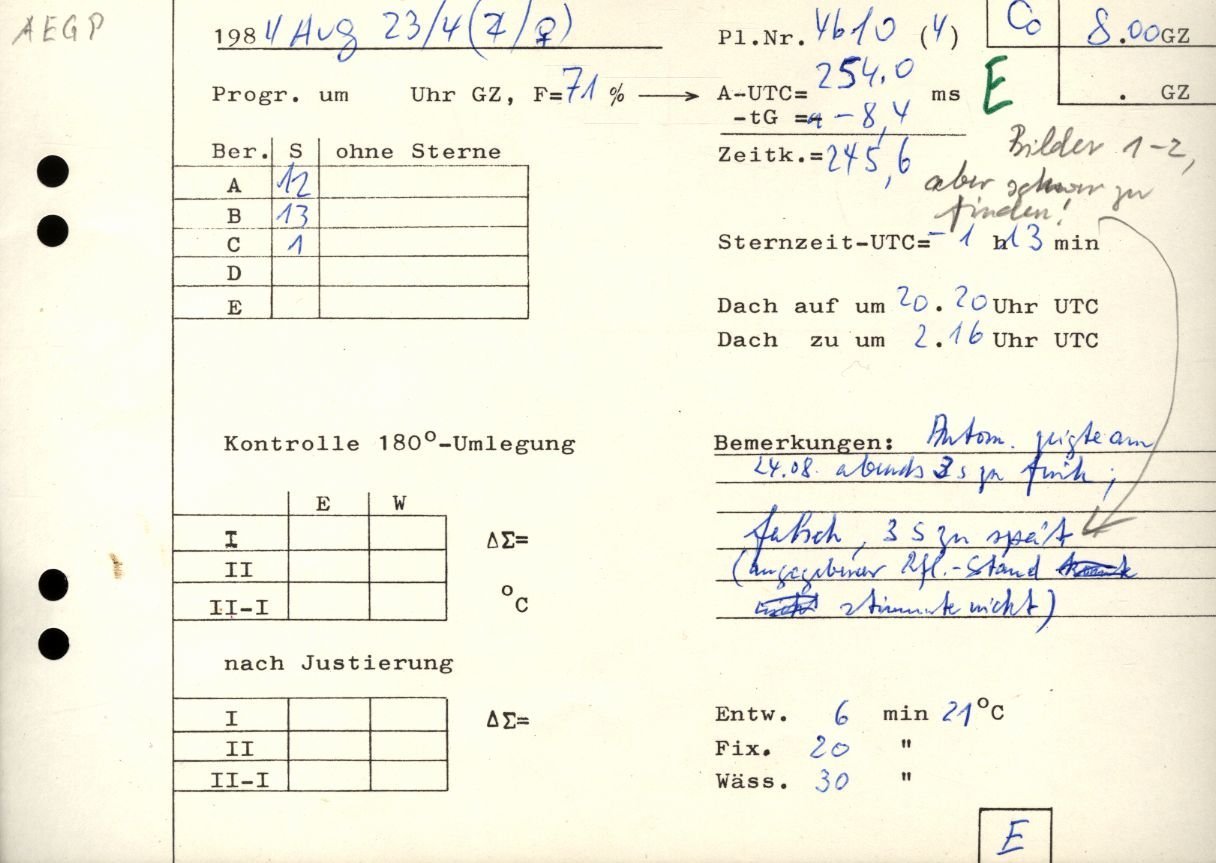 AEGP
1984 Aug 23/4 (♃/♀)
Pl.Nr. 4610 (4)
Co 8.00 GZ
. GZ
Progr. um Uhr GZ, F=71 % → A-UTC= 254.0 ms
E
-tG = -8,4
Zeitk.=245,6
Bilder 1-2,
aber schwer zu
finden!
Ber. S ohne Sterne
A 12
B 13
C 1
D
E
Sternzeit-UTC= -1 h 13 min
Dach auf um 20.20 Uhr UTC
Dach zu um 2.16 Uhr UTC
Kontrolle 180°-Umlegung
E W
I ΔΣ=
II
II-I °C
nach Justierung
I ΔΣ=
II
II-I
Bemerkungen: Autom. zeigte am
24.08. abends 3 s zu früh;
falsch, 3 s zu spät
(angegebener Rfl.-Stand
stimmte nicht)
Entw. 6 min 21°C
Fix. 20 "
Wäss. 30 "
E